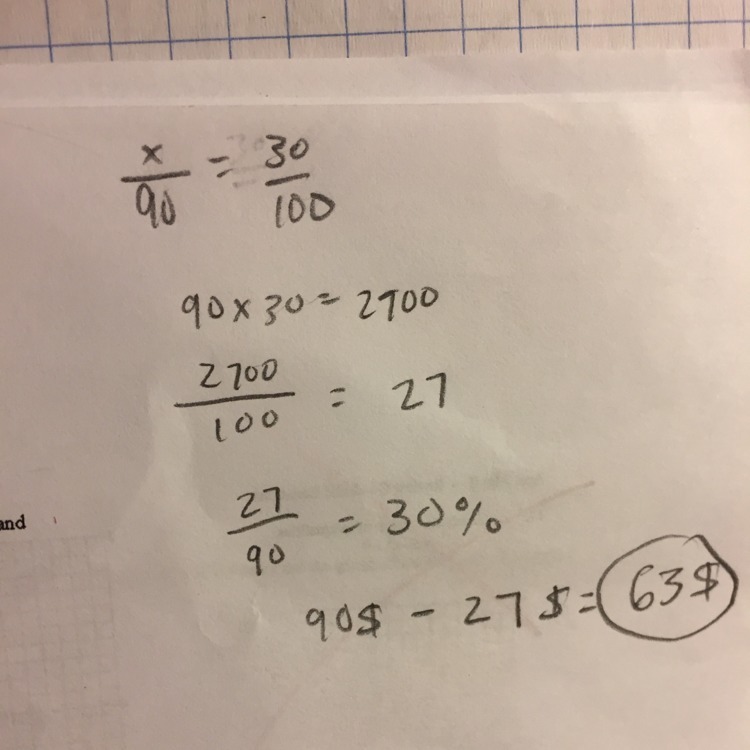 x/90 = 30/100
90 x 30 = 2700
2700/100 = 27
27/90 = 30%
and
90$ - 27$ = 63$